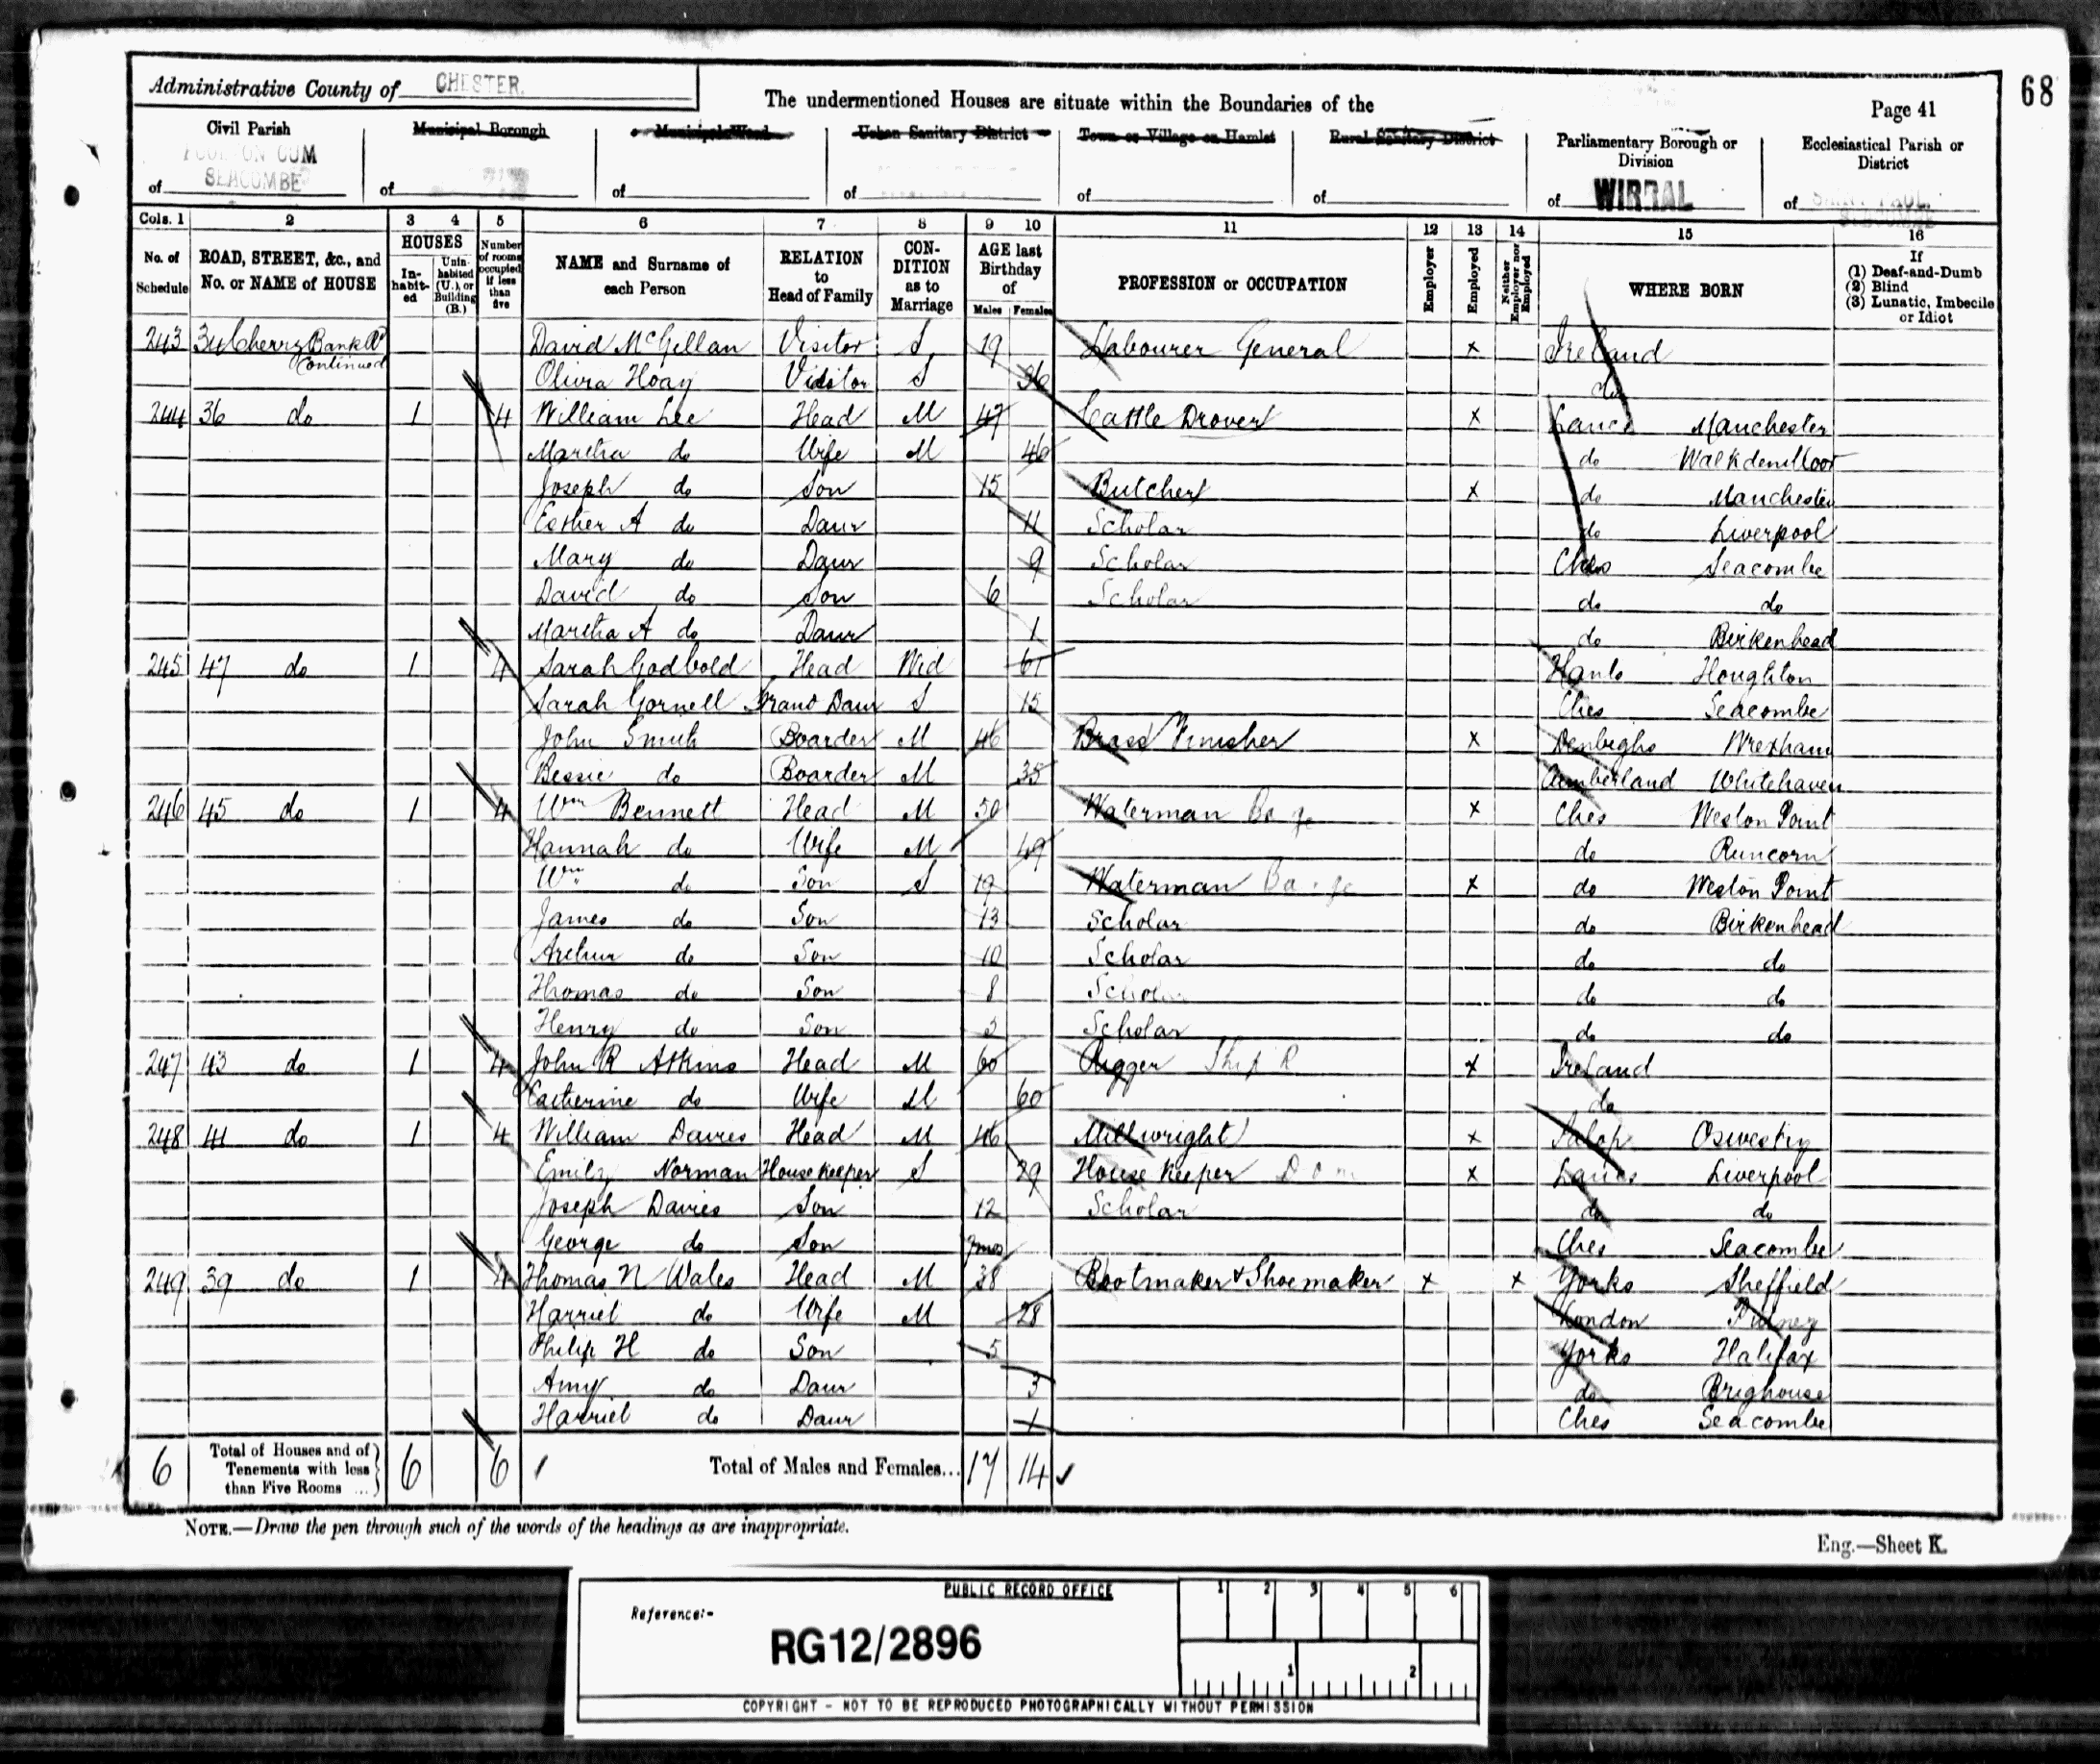 68
Administrative County of CHESTER.
The undermentioned Houses are situate within the Boundaries of the
Page 41
Civil Parish of CUM SEACOMBE
Municipal Borough of
Municipal Ward of
Urban Sanitary District of
Town or Village or Hamlet of
Rural Sanitary District of
Parliamentary Borough or Division of WIRRAL
Ecclesiastical Parish or District of
Cols. 1 2 3 4 5 6 7 8 9 10 11 12 13 14 15 16
No. of Schedule
ROAD, STREET, &c., and No. or NAME of HOUSE
HOUSES
In-habit-ed
Unin-habited (U.), or Building (B.)
Number of rooms occupied if less than five
NAME and Surname of each Person
RELATION to Head of Family
CON-DITION as to Marriage
AGE last Birthday of
Males Females
PROFESSION or OCCUPATION
Employer
Employed
Neither Employer nor Employed
WHERE BORN
If (1) Deaf-and-Dumb (2) Blind (3) Lunatic, Imbecile or Idiot
243 34 Cherry Bank Rd David McGellan Visitor S 19 Labourer General x Ireland
Continued Olivia Hoay Visitor S 36 do
244 36 do 1 4 William Lee Head M 47 Cattle Drover x Lancs Manchester
Martha do Wife M 46 do Walkden Moor
Joseph do Son 15 Butcher x do Manchester
Esther A do Daur 11 Scholar do Liverpool
Mary do Daur 9 Scholar Ches Seacombe
David do Son 6 Scholar do do
Martha A do Daur 1 do Birkenhead
245 47 do 1 4 Sarah Godbold Head Wid 61 Hants Houghton
Sarah Gornell Grand Daur S 15 Ches Seacombe
John Smith Boarder M 46 Brass Finisher x Denbighs Wrexham
Bessie do Boarder M 35 Cumberland Whitehaven
246 45 do 1 4 Wm Bennett Head M 50 Waterman x Ches Weston Point
Hannah do Wife M 49 do Runcorn
Wm do Son S 19 Waterman x do Weston Point
James do Son 13 Scholar do Birkenhead
Arthur do Son 10 Scholar do do
Thomas do Son 8 Scholar do do
Henry do Son 5 Scholar do do
247 43 do 1 4 John R Atkins Head M 60 Rigger Ship R x Ireland
Catherine do Wife M 60 do
248 41 do 1 4 William Davies Head M 46 Millwright x Salop Oswestry
Emily Norman Housekeeper S 29 House Keeper Dom x Lancs Liverpool
Joseph Davies Son 12 Scholar do do
George do Son 7mos Ches Seacombe
249 39 do 1 4 Thomas N Wales Head M 38 Bootmaker & Shoemaker x x Yorks Sheffield
Harriet do Wife M 28 London Putney
Philip H do Son 5 Yorks Halifax
Amy do Daur 3 do Brighouse
Harriet do Daur 1 Ches Seacombe
6 Total of Houses and of Tenements with less than Five Rooms ... 6 6 Total of Males and Females... 17 14
NOTE.—Draw the pen through such of the words of the headings as are inappropriate.
Eng.—Sheet K.
PUBLIC RECORD OFFICE
Reference:-
RG12/2896
1 2 3 4 5 6
1 2
COPYRIGHT - NOT TO BE REPRODUCED PHOTOGRAPHICALLY WITHOUT PERMISSION